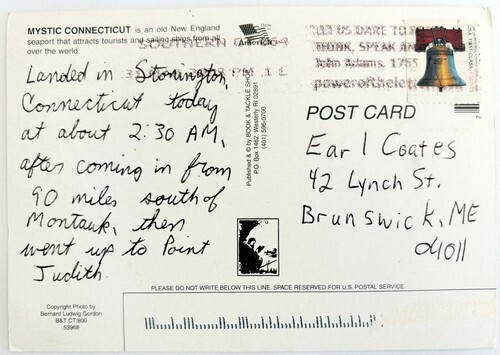 MYSTIC CONNECTICUT is an old New England
seaport that attracts tourists and sailing ships from all
over the world.
Landed in Stonington,
Connecticut today
at about 2:30 AM,
after coming in from
90 miles south of
Montauk, then
went up to Point
Judith.
Copyright Photo by
Bernard Ludwig Gordon
B&T CT:800
53968
America
Published & © by BOOK & TACKLE SHOP
P.O. Box 1462, Westerly RI 02891
(401) 596-0700
SOUTHERN
PM
LET US DARE TO
THINK, SPEAK AN
John Adams, 1765
poweroftheletter
USA FIRST-CLASS
POST CARD
Earl Coates
42 Lynch St.
Brunswick, ME
04011
PLEASE DO NOT WRITE BELOW THIS LINE. SPACE RESERVED FOR U.S. POSTAL SERVICE.